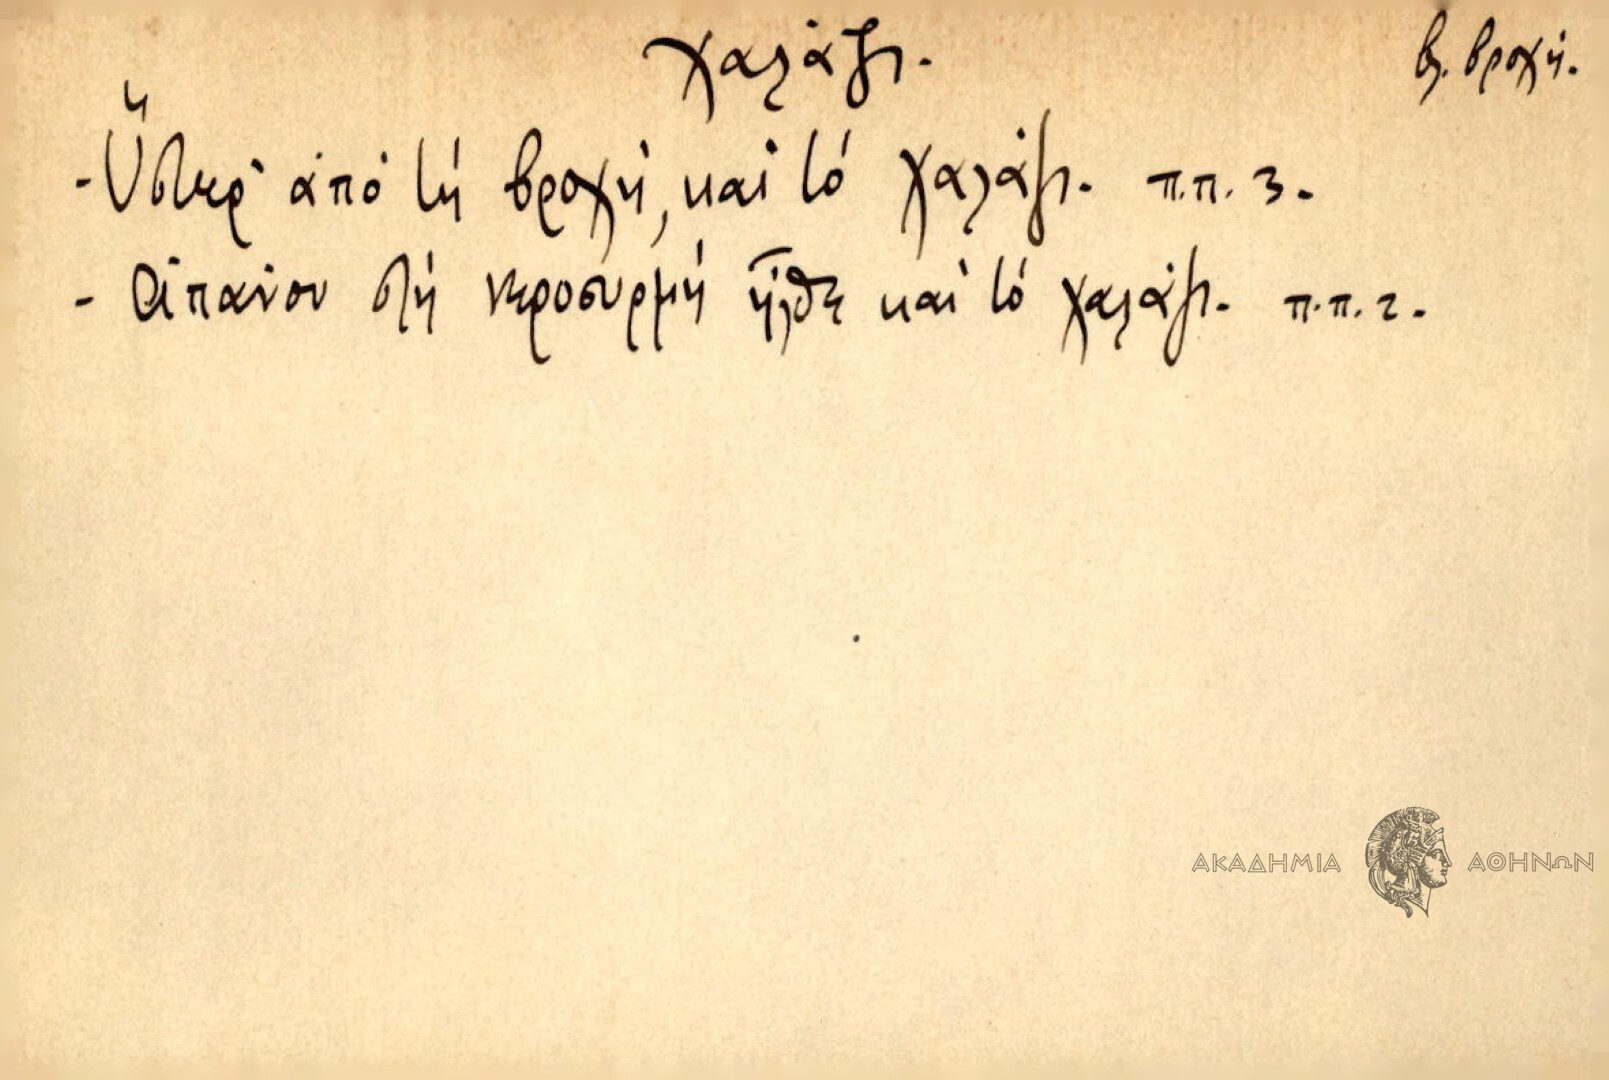 χαλάζι. βλ. βροχή.
- Ὕστερ' ἀπό τή βροχή, καί τό χαλάζι. π.π. 3.
- Ἀπάνου στή νεροσυρμή ἦλθε καί τό χαλάζι. π.π. 2.
ΑΚΑΔΗΜΙΑ ΑΘΗΝΩΝ